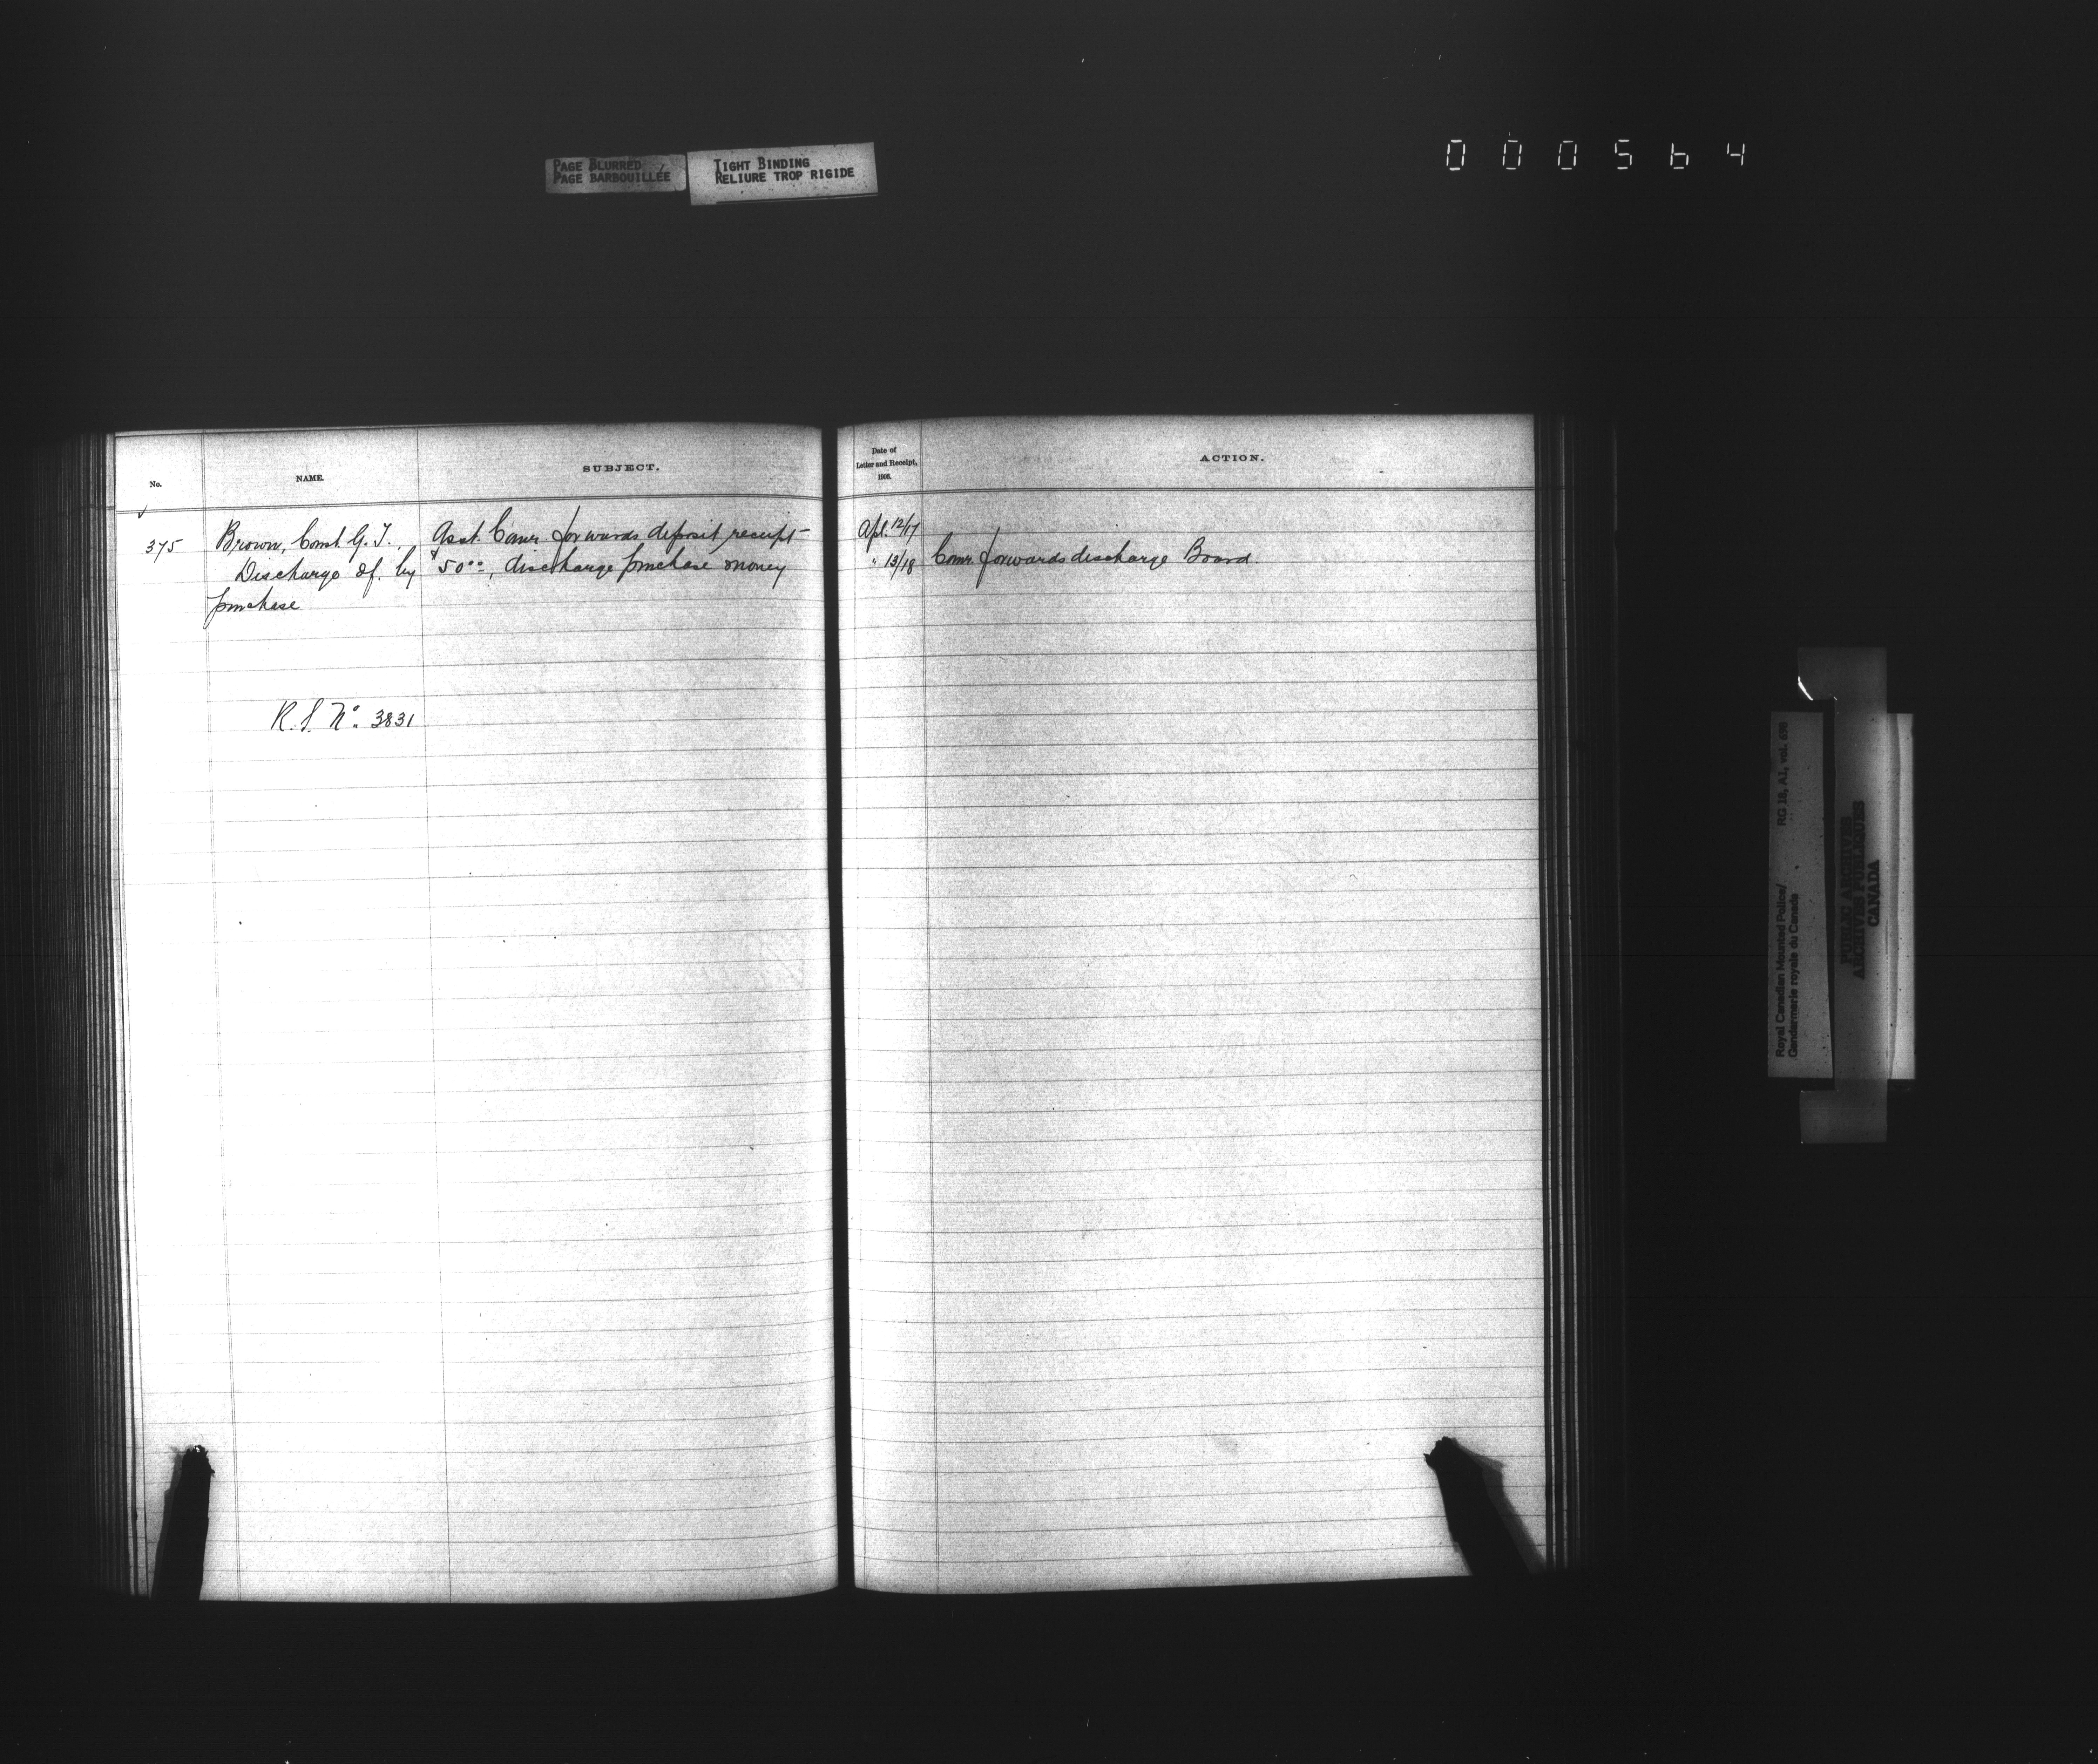 PAGE BLURRED
PAGE BARBOUILLÉE
TIGHT BINDING
RELIURE TROP RIGIDE
000564
No.
NAME.
SUBJECT.
Date of
Letter and Receipt,
1906.
ACTION.
375
Brown, Const. G. T.,
Discharge of. by
purchase
Asst. Comr. forwards deposit receipt
$50.00, discharge purchase money
Apl. 12/17
" 13/18
Comr. forwards discharge Board.
R.S. No. 3831
Royal Canadian Mounted Police/
Gendarmerie royale du Canada
RG 18, A1, vol. 698
PUBLIC ARCHIVES
ARCHIVES PUBLIQUES
CANADA